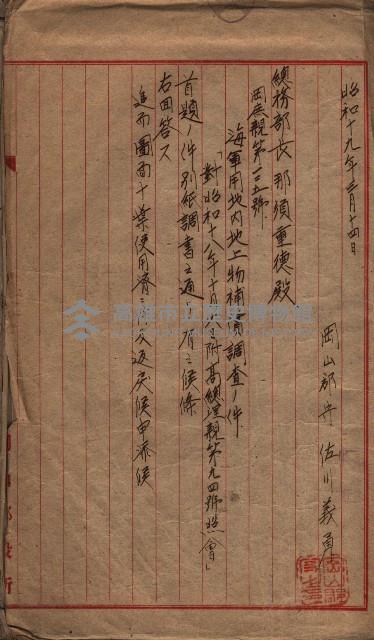 昭和十九年三月十四日
岡山郡守 佐川義勇
總務部長 那須重德殿
岡庶親第一二五號
海軍用地內地上物補償調查ノ件
「對昭和十八年十月 附高總連親第九四號照會」
首題ノ件別紙調書之通 有之候條
右回答ス
追而圖面十葉使用濟ニ 返戾候申添候
高雄市立歷史博物館